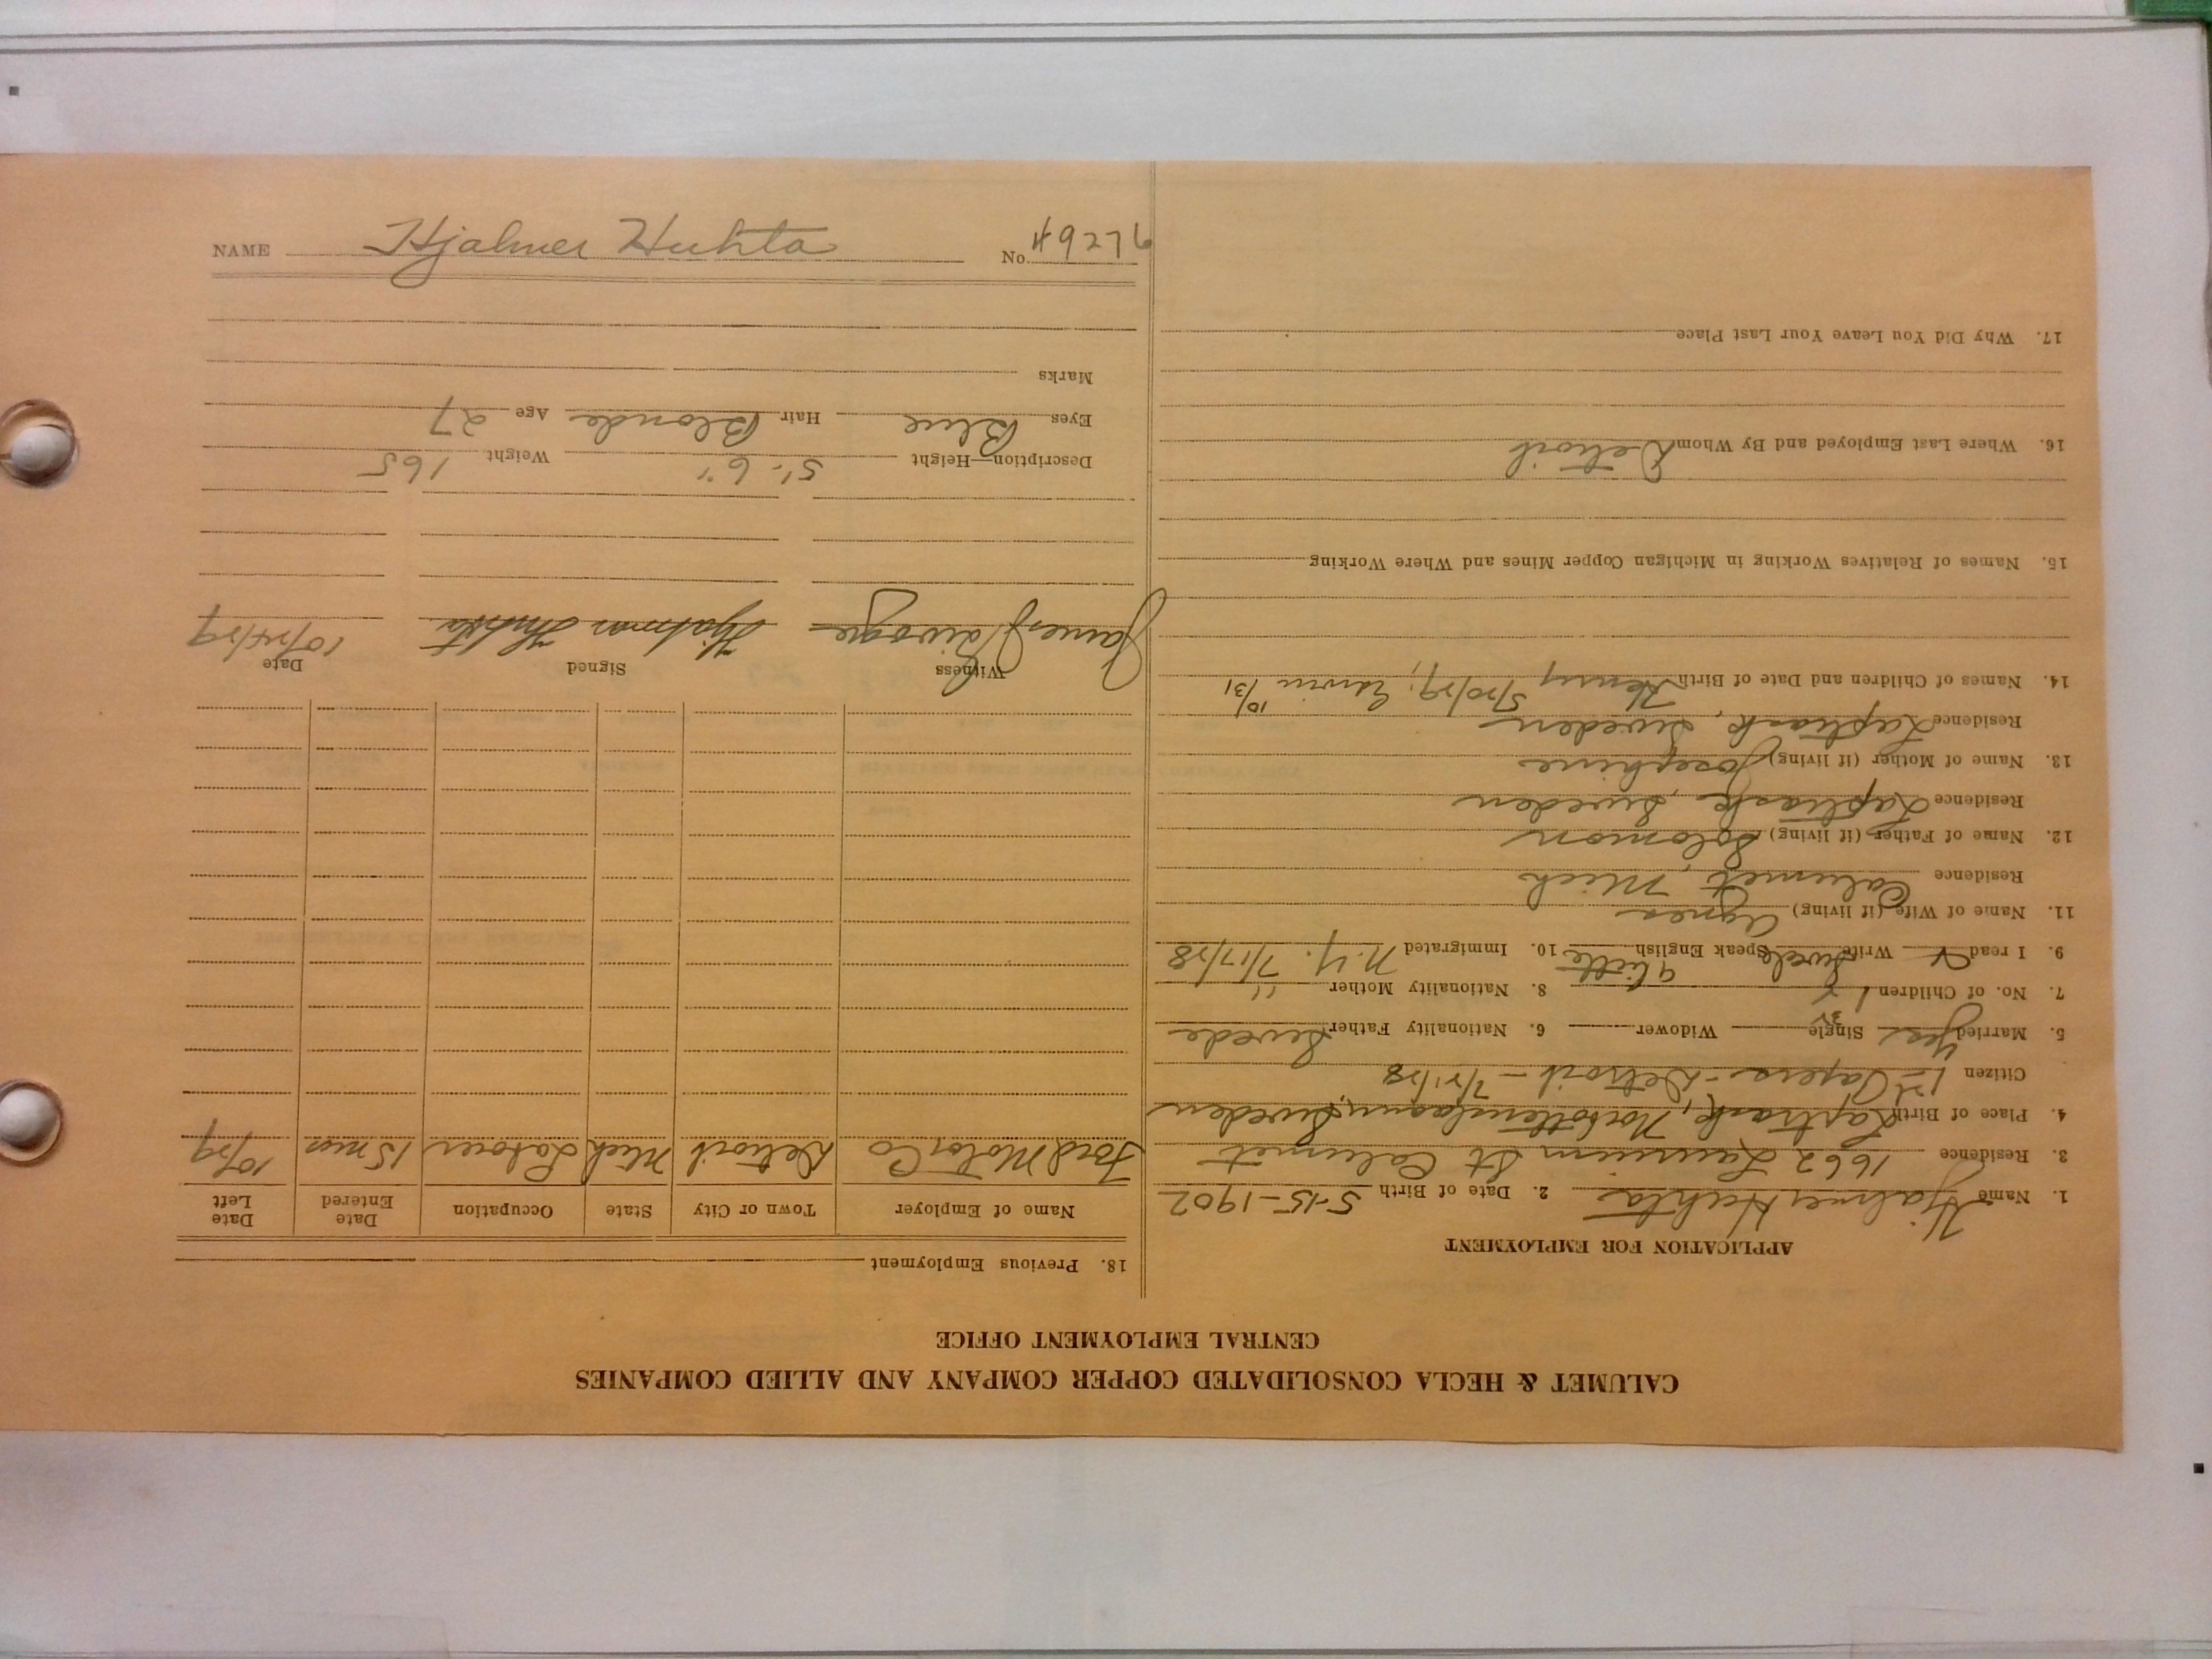 CALUMET & HECLA CONSOLIDATED COPPER COMPANY AND ALLIED COMPANIES
CENTRAL EMPLOYMENT OFFICE
APPLICATION FOR EMPLOYMENT
1. Name Hjalmer Huhta 2. Date of Birth 5-15-1902
3. Residence 1662 Laurium St Calumet
4. Place of Birth Sweden
Citizen 1st Papers - Detroit -
5. Married Yes Single Widower 6. Nationality Father Swede
7. No. of Children 8. Nationality Mother "
9. I read Write Swede Speak English little 10. Immigrated N.Y. 7/17/28
11. Name of Wife (if living) Agnes
Residence Calumet, Mich
12. Name of Father (if living) Solomon
Residence Sweden
13. Name of Mother (if living) Josephine
Residence Sweden
14. Names of Children and Date of Birth Henry 5/20/29; Edwin 10/31
15. Names of Relatives Working in Michigan Copper Mines and Where Working
16. Where Last Employed and By Whom Detroit
17. Why Did You Leave Your Last Place
18. Previous Employment
Name of Employer Town or City State Occupation Date Entered Date Left
Ford Motor Co Detroit Mich Laborer 15 mos 10/29
Witness Signed Date
James Hjalmar Huhta 10/24/29
Description—Height 5'-6" Weight 165
Eyes Blue Hair Blonde Age 27
Marks
NAME Hjalmer Huhta No.